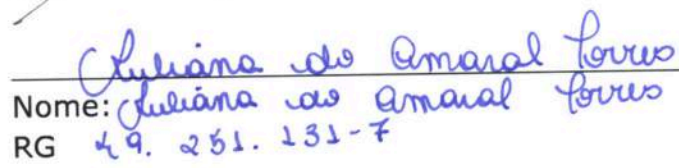 Juliana do Amaral Torres
Nome: Juliana do Amaral Torres
RG 49. 251. 131-7